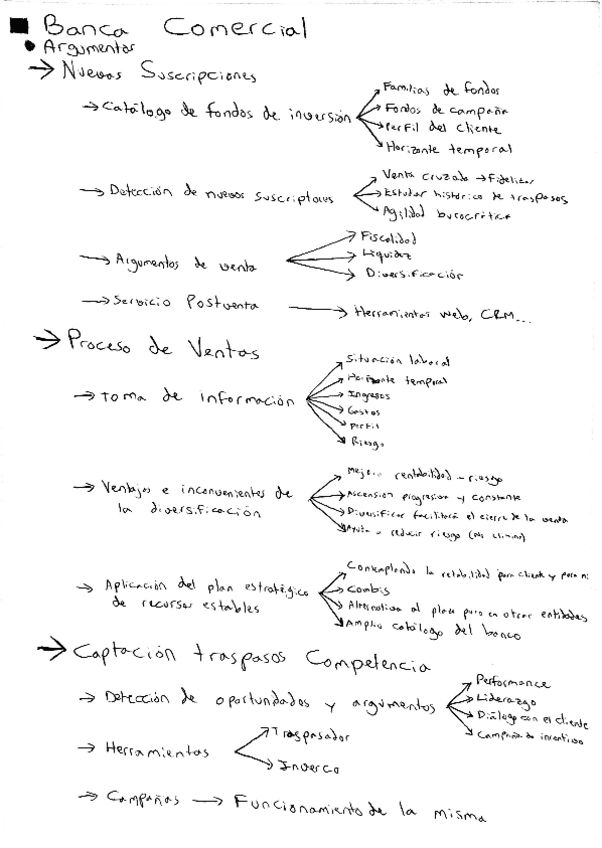 Banca Comercial
Argumentos
Nuevas Suscripciones
Catálogo de fondos de inversión
Familias de fondos
Fondos de campaña
Perfil del cliente
Horizonte temporal
Detección de nuevos suscriptores
Venta cruzada → Fidelizar
Estudiar histórico de traspasos
Agilidad burocrática
Argumentos de venta
Fiscalidad
Liquidez
Diversificación
Servicio Postventa
Herramientas web, CRM...
Proceso de Ventas
Toma de información
Situación laboral
Horizonte temporal
Ingresos
Gastos
Perfil
Riesgo
Ventajas e inconvenientes de
la diversificación
Mejor rentabilidad - riesgo
Ascensión progresiva y constante
Diversificar facilitará el cierre de la venta
Ayuda a reducir riesgo (no elimina)
Aplicación del plan estratégico
de recursos estables
Contemplando la retabilidad para cliente y para mi
Combis
Alternativa al plazo puro en otras entidades
Amplio catálogo del banco
Captación traspasos Competencia
Detección de oportundades y argumentos
Performance
Liderazgo
Diálogo con el cliente
Campaña de incentivo
Herramientas
Traspasador
Inverco
Campañas → Funcionamiento de la misma